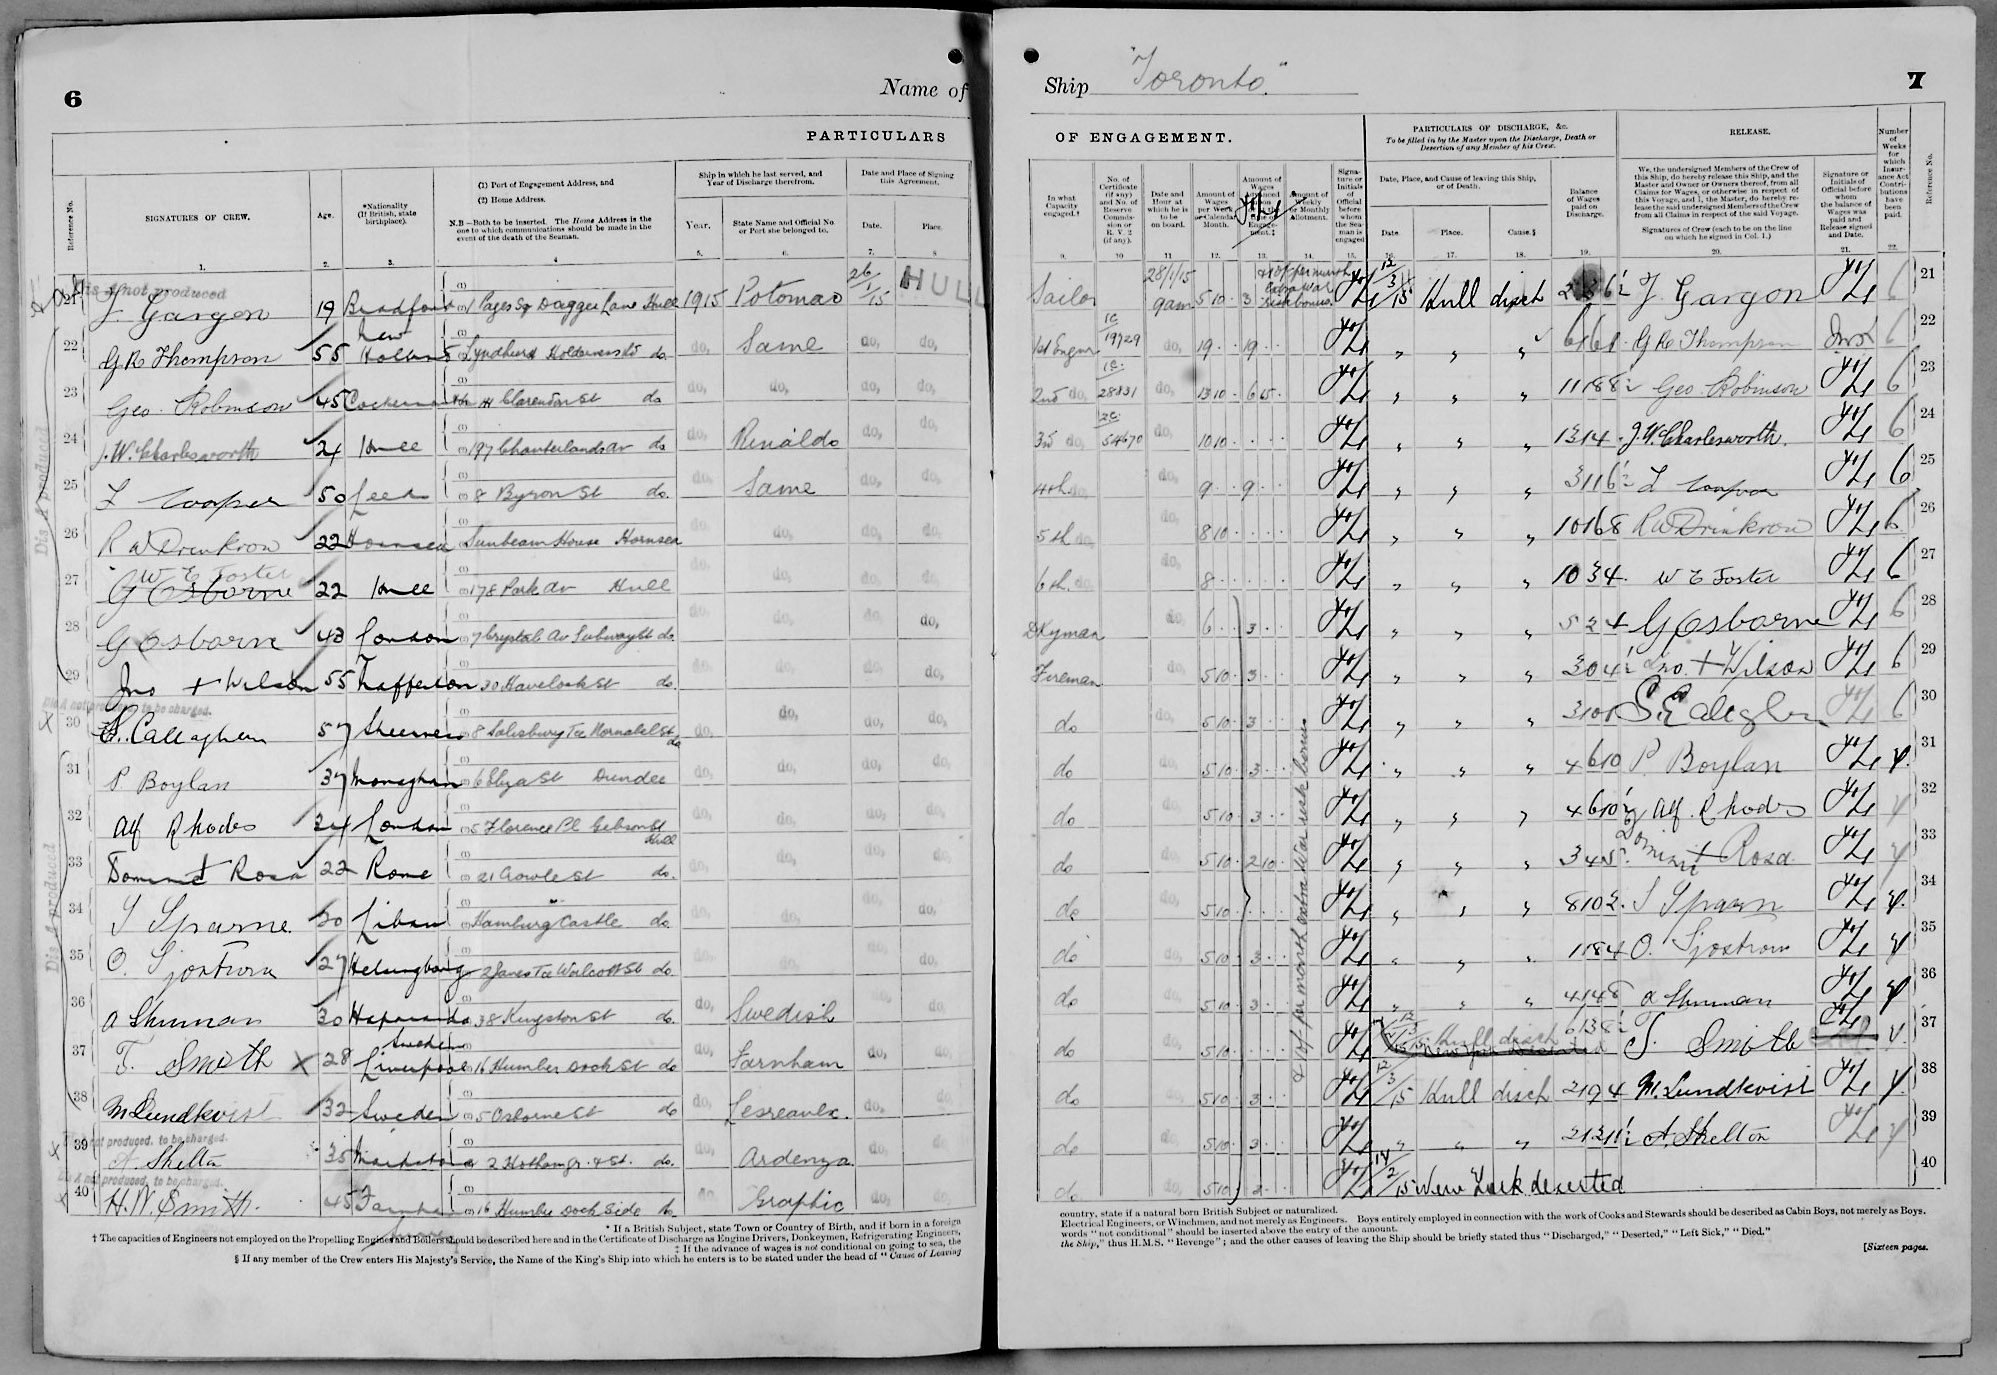 6
Name of
PARTICULARS
Reference No.
SIGNATURES OF CREW.
Age.
*Nationality
(If British, state
birthplace).
(1) Port of Engagement Address, and
(2) Home Address.
N.B.—Both to be inserted. The Home Address in the
one to which communications should be made in the
event of the death of the Seaman.
Ship in which he last served, and
Year of Discharge therefrom.
Year.
State Name and Official No.
or Port she belonged to.
Date and Place of Signing
this Agreement.
Date.
Place.
1. 2. 3. 4 5. 6. 7. 8
Dis A not produced
21 J. Gargon 19 Bradford 1 Pages Sq Dagger Lane Hull 1915 Potomac 26/1/15 HULL
22 G R Thompson 55 New Holland Lyndhurst Holderness Rd do. do, Same do, do,
23 Geo. Robinson 45 111 Clarendon St do do, do, do, do,
24 J.W. Charlesworth 24 Hull 197 Chanterlands Av do do, Rinaldo do, do,
25 Z Cooper 50 Leeds 8 Byron St do. do, Same do, do,
26 R W Drinkrow 22 Hornsea Sunbeam House Hornsea do, do, do, do,
27 W E Foster G Osborne 22 Hull 178 Park Av Hull do, do, do, do,
28 G Osborne 43 London 7 Crystal Av Subway St do do, do, do, do,
29 Jno + Wilson 55 Nafferton 30 Havelock St do. do, do, do, do,
Dis A not produced, to be charged.
30 S. Callaghan 57 Sheerness 8 Salisbury Tce Wornabel St do do, do, do, do,
31 P Boylan 37 Monaghan 6 Eliza St Dundee do, do, do, do,
32 Alf Rhodes 24 London 5 Florence Pl Gibson St Hull do, do, do, do,
33 Dominit Rosa 22 Rome 21 Crowle St do. do, do, do, do,
34 S Sparne 30 Libau Hamburg Castle do. do, do, do, do,
35 O. Sjostrom 27 Helsingborg 2 Janes Tce Walcott St do. do, do, do, do,
36 A Shuman 30 Haparanda Sweden 38 Kingston St do. do, Swedish do, do,
37 T. Smith X 28 Liverpool 16 Humber Dock St do do, Farnham do, do,
38 M Lundkvist 32 Sweden 5 Osborne St do do, do, do,
Dis A not produced, to be charged.
39 A. Shelton 35 Maidstone 2 Hotham St. do. do, Ardenza do, do,
Dis A not produced, to be charged.
40 H.W. Smith. 45 16 Humber Dock Side do do, Graphic do, do,
Dis A produced
Dis A produced
* If a British Subject, state Town or Country of Birth, and if born in a foreign
† The capacities of Engineers not employed on the Propelling Engines and Boilers should be described here and in the Certificate of Discharge as Engine Drivers, Donkeymen, Refrigerating Engineers,
‡ If the advance of wages is not conditional on going to sea, the
§ If any member of the Crew enters His Majesty's Service, the Name of the King's Ship into which he enters is to be stated under the head of "Cause of Leaving
Ship "Toronto."
7
OF ENGAGEMENT.
PARTICULARS OF DISCHARGE, &c.
To be filled in by the Master upon the Discharge, Death or
Desertion of any Member of his Crew.
RELEASE.
Number
of
Weeks
for
which
Insur-
ance Act
Contri-
butions
have
been
paid.
Reference No.
In what
Capacity
engaged.†
No. of
Certificate
(if any)
and No. of
Reserve
Commis-
sion or
R. V. 2
(if any).
Date and
Hour at
which he is
to be
on board.
Amount of
Wages
per Week
or Calendar
Month.
Amount of
Wages
Advanced
Engage-
ment.‡
Amount of
Weekly
or Monthly
Allotment.
Signa-
ture or
Initials
of
Official
before
whom
the Sea-
man is
engaged
Date, Place, and Cause of leaving this Ship,
or of Death.
Date. Place. Cause.§
Balance
of Wages
paid on
Discharge.
We, the undersigned Members of the Crew of
this Ship, do hereby release this Ship, and the
Master and Owner or Owners thereof, from all
Claims for Wages, or otherwise in respect of
this Voyage, and I, the Master, do hereby re-
lease the said undersigned Members of the Crew
from all Claims in respect of the said Voyage.
Signatures of Crew (each to be on the line
on which he signed in Col. 1.)
Signature or
Initials of
Official before
whom
the balance of
Wages was
paid and
Release signed
and Date.
9. 10 11 12. 13. 14. 15. 16. 17. 18. 19. 20. 21. 22.
Sailor 28/1/15 9am 5 10 3 £1 0/- per month extra war risk bonus. 12/3/15 Hull disch J. Gargon 6 21
1st Engnr 1C 19729 do, 19 19 " " " G R Thompson 6 22
2nd do, 1C. 28831 do, 13 10 6 15 " " " 11 18 8 Geo Robinson 6 23
3rd do, 2C. 54670 do, 10 10 " " " 13 14 J.W. Charlesworth. 6 24
4th do, do, 9 9 " " " 3 11 6 Z Cooper 6 25
5th do, do, 8 10 " " " 10 16 8 R W Drinkrow 6 26
6th. do, 8 " " " 10 3 4 W E Foster 6 27
DKyman do, 6 3 " " " 5 2 4 G Osborne 6 28
Fireman do, 5 10 3 " " " 3 0 4 Jno. + Wilson 6 29
do do, 5 10 3 " " " 6 30
do do, 5 10 3 " " " 4 6 10 P. Boylan 31
do do, 5 10 3 " " " 4 6 10 Alf. Rhodes 32
do do, 5 10 2 10 " " " 3 4 5 Dominit Rosa 33
do do, 5 10 " " " 8 10 2 S Sparn 34
do do, 5 10 3 " " " 1 18 4 O. Sjostrom 35
do do, 5 10 3 " " " 4 14 8 A Shuman 36
do do, 5 10 12/3/15 Hull disch New York Deserted 6 13 8 T. Smith 37
do do, 5 10 3 12/3/15 Hull disch 2 19 4 M. Lundkvist 38
do do, 5 10 3 " " " 2 12 11 A. Shelton 39
do do, 5 10 3 14/2/15 New York deserted 40
£1 0/- per month extra War risk bonus
country, state if a natural born British Subject or naturalized.
Electrical Engineers, or Winchmen, and not merely as Engineers. Boys entirely employed in connection with the work of Cooks and Stewards should be described as Cabin Boys, not merely as Boys.
words "not conditional" should be inserted above the entry of the amount.
the Ship," thus H.M.S. "Revenge"; and the other causes of leaving the Ship should be briefly stated thus "Discharged," "Deserted," "Left Sick," "Died."
[Sixteen pages.